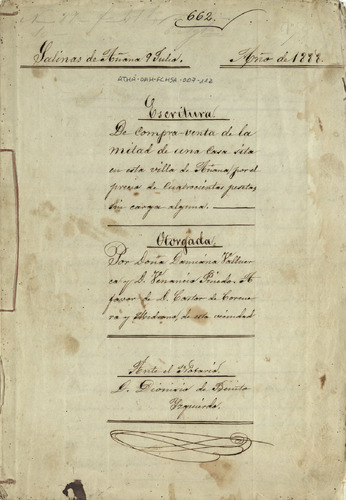 662.
Salinas de Añana 9 Julio
Año de 1888.
ATHA-DAH-FCMSA-007-112
Escritura
De Compra-venta de la
mitad de una Casa sita
en esta villa de Añana, por el
precio de Cuatrocientas pesetas,
sin carga alguna.
Otorgada
Por Doña Damiana Valluer
ca y D. Venancio Pinedo. A
favor de D. Castor de Corcue-
ra y Medrano, de esta vecindad
Ante el Notario
D. Dionisio de Benito
Yzquierdo.